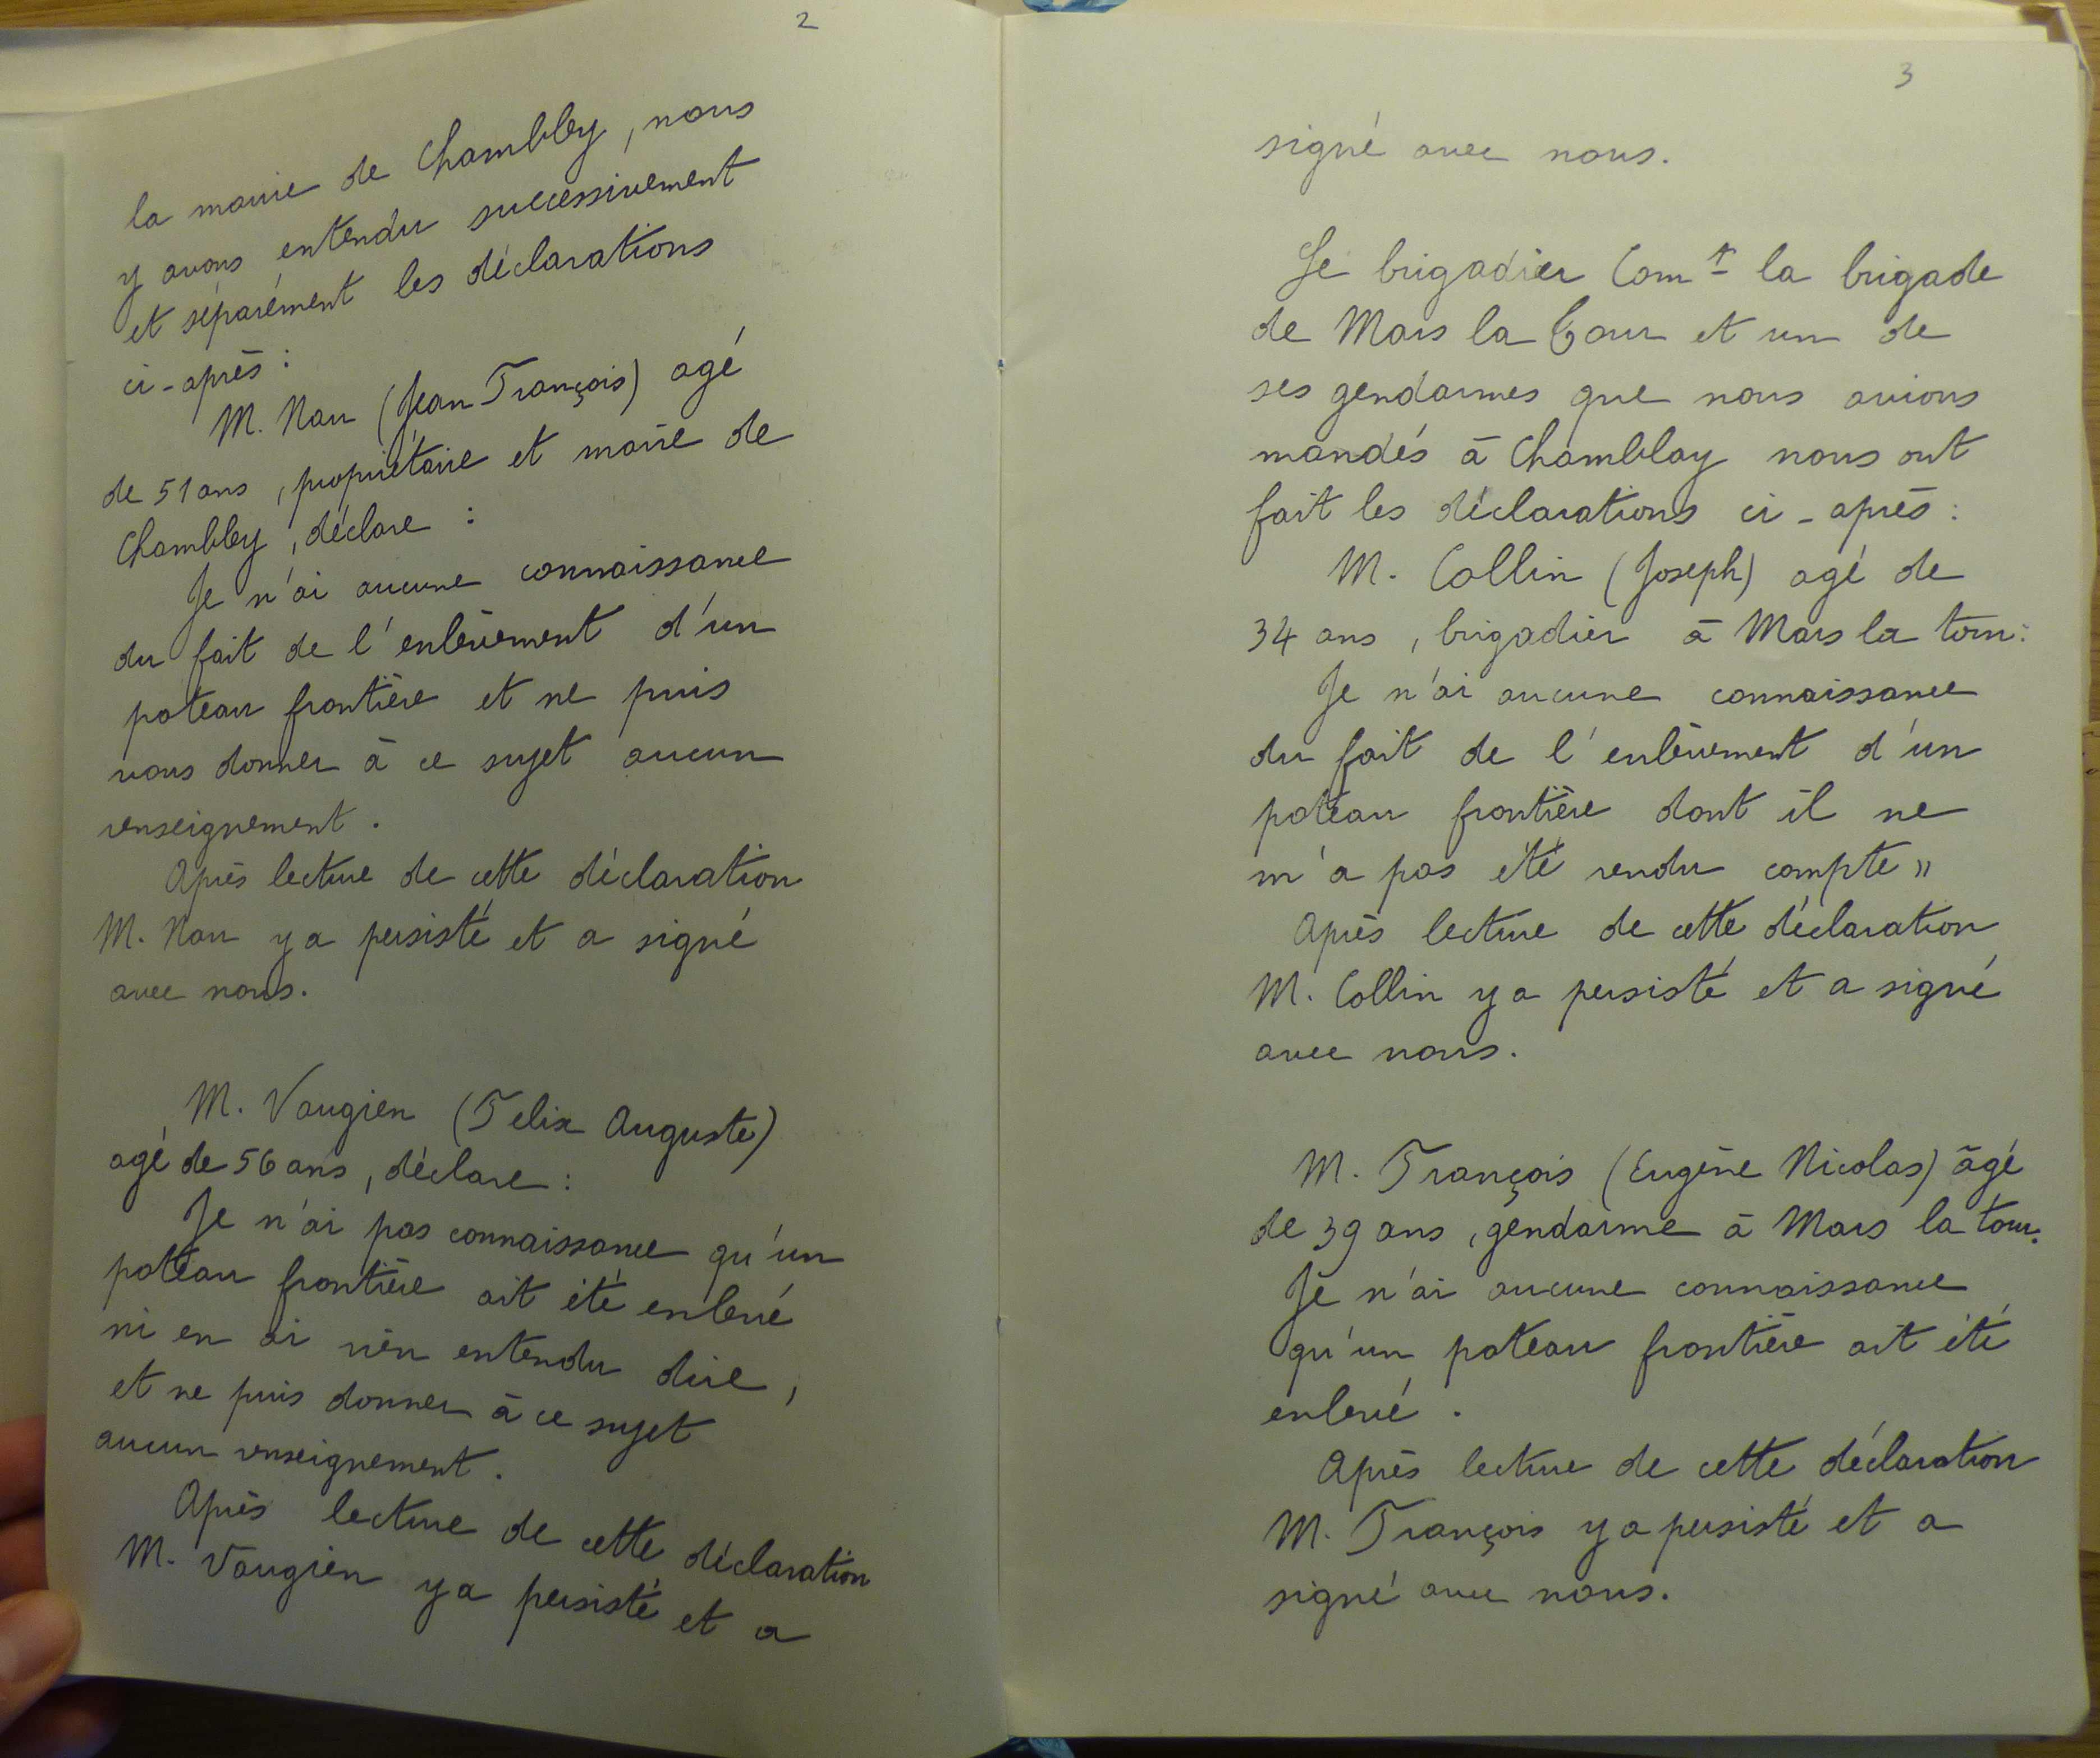 2
la mairie de Chambley, nous
y avons entendu successivement
et séparément les déclarations
ci-après :
M. Nau (Jean François) agé
de 51 ans, propriétaire et maire de
Chambley, déclare :
Je n'ai aucune connaissance
du fait de l'enlèvement d'un
poteau frontière et ne puis
vous donner à ce sujet aucun
renseignement.
Après lecture de cette déclaration
M. Nau y a persisté et a signé
avec nous.
M. Vaugien (Felix Auguste)
agé de 56 ans, déclare :
Je n'ai pas connaissance qu'un
poteau frontière ait été enlevé
ni en ai rien entendu dire,
et ne puis donner à ce sujet
aucun renseignement.
Après lecture de cette déclaration
M. Vaugien y a persisté et a
3
signé avec nous.
Le brigadier Com^t la brigade
de Mars la Tour et un de
ses gendarmes que nous avions
mandés à Chamblay nous ont
fait les déclarations ci-après :
M. Collin (Joseph) agé de
34 ans, brigadier à Mars la tour :
Je n'ai aucune connaissance
du fait de l'enlèvement d'un
poteau frontière dont il ne
m'a pas été rendu compte »
Après lecture de cette déclaration
M. Collin y a persisté et a signé
avec nous.
M. François (Eugène Nicolas) âgé
de 39 ans, gendarme à Mars la tour.
Je n'ai aucune connaissance
qu'un poteau frontière ait été
enlevé.
Après lecture de cette déclaration
M. François y a persisté et a
signé avec nous.